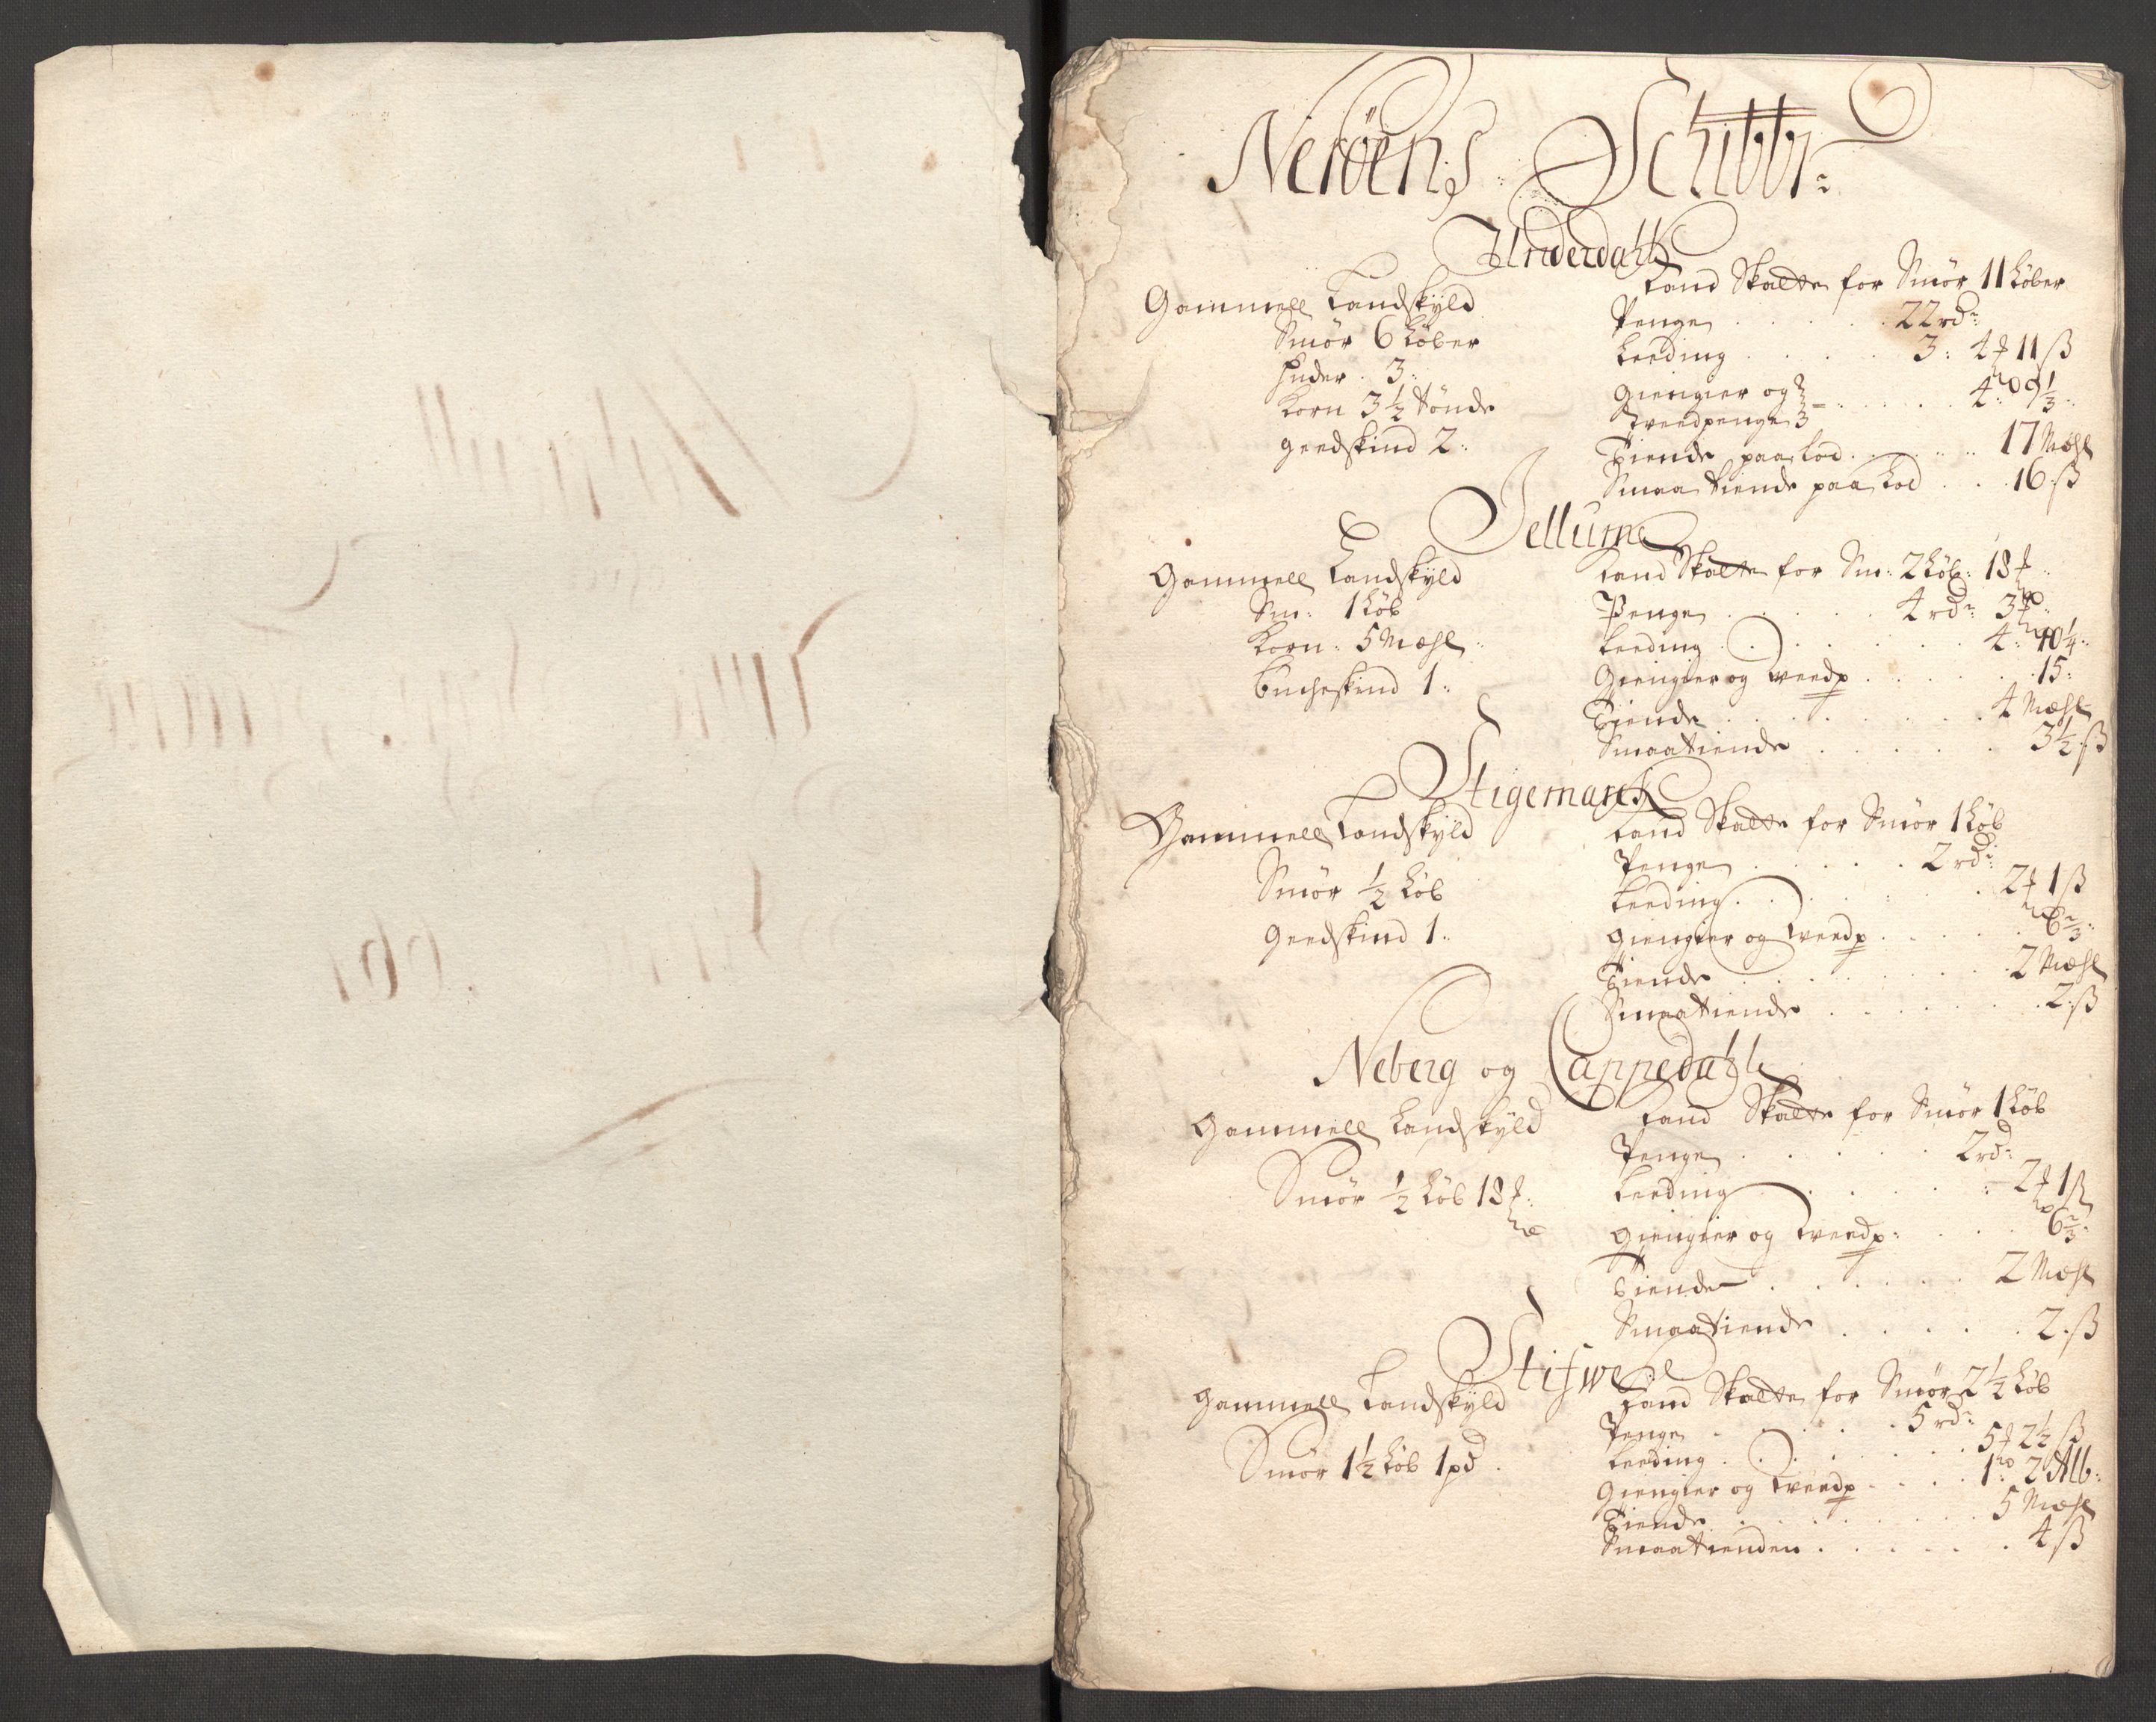 Nerøens Schibbr:
Underdahl
Gammell Landskyld
Smør 6 Løber
Huder . 3:
Korn 3½ tønde
geedskind 2:
Land Skatte for Smør 11 Løber
Penge . . . . . 22 rdr:
Leeding . . . . . 3: 4 11 ß
Giengier og
tveedpenge . . . . . 4: 9⅓
Tiende paa Lod . . . . . 17 Mæhl
Smaa tiende paa Lod . . . 16 ß
Jellum
Gammell Landskyld
Sm: 1 Løb
Korn: 5 Mæhl
bucheskind 1:
Land Skatte for Sm: 2 Løb: 18
Penge . . . . . 4 rdr: 3
Leeding . . . . . 4: 10¼
Giengier og tveedp . . . . . 15:
Tiende . . . . . 4 Mæhl
Smaatiende . . . . . 3½ ß
Stigemarch
Gammell Landskyld
Smør ½ Løb
geedskind 1:
Land Skatte for Smør 1 Løb
Penge . . . . . 2 rdr:
Leeding . . . . . 2 1 ß
Giengier og tveedp . . . . . 6⅔:
Tiende . . . . . 2 Mæhl
Smaatiende . . . . . 2 ß
Neberg og Cappedahl
Gammell Landskyld
Smør ½ Løb 18
Land Skatte for Smør 1 Løb
Penge . . . . . 2 rd:
Leeding . . . . . 2 1 ß
Giengier og tveedp: . . . . 6⅔:
Tiende . . . . . 2 Mæhl
Smaatiende . . . . . 2 ß
Stifwe
Gammell Landskyld
Smør 1½ Løb 1 pd
Land Skatte for Smør 2½ Løb
Penge . . . . . 5 rdr:
Leeding . . . . . 5 2½ ß
Giengier og tveedp . . . . 1 2 Alb:
Tiende . . . . . 5 Mæhl
Smaatienden . . . . . 4 ß